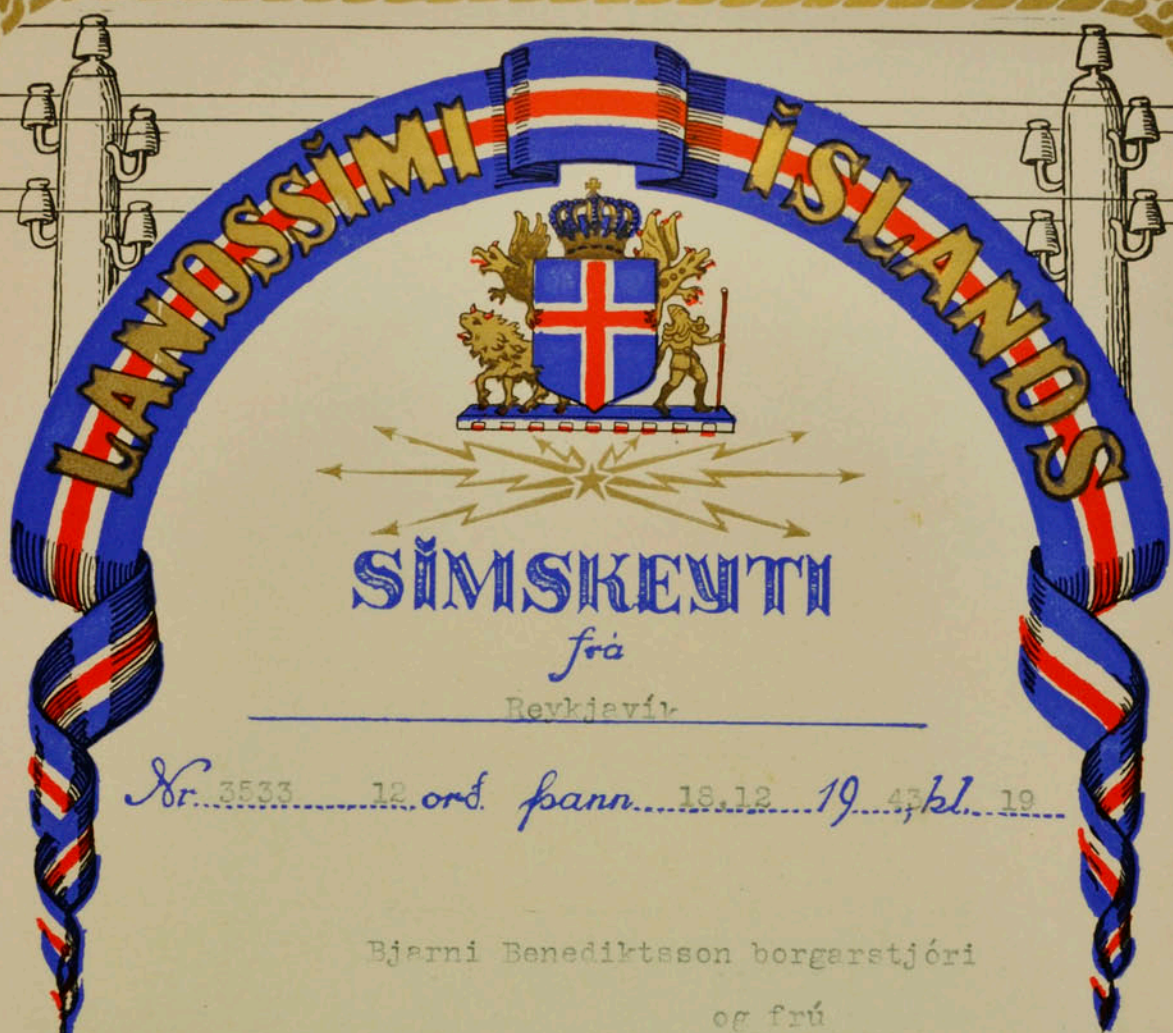 LANDSSÍMI ÍSLANDS
SÍMSKEYTI
frá
Reykjavík
Nr. 3533 12 orð. þann 18.12 19 43, kl. 19
Bjarni Benediktsson borgarstjóri
og frú